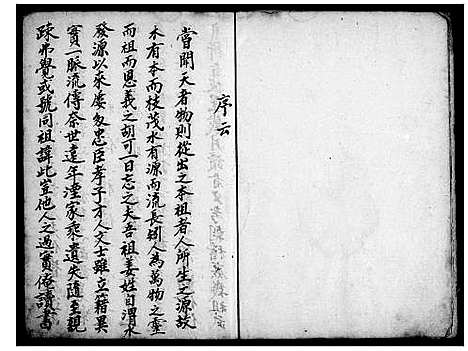 序云
嘗聞天者物則從出之本祖者人所生之源故
木有本而枝茂水有源而流長矧人為萬物之靈
而祖而恩義之胡可一日忘之夫吾祖姜姓自渭水
發源以來屡多忠臣孝子才人文士雖立籍異
實一脈流傳奈世遠年湮家乘遺失隨至親
疎弗覺或號同祖諱此豈他人之過實俺讀書